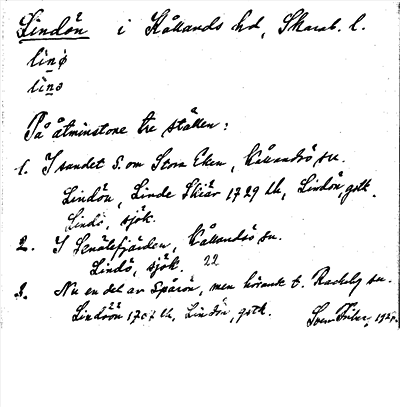 Lindön i Kållands hd, Skarab. l.
li̱nø
li̱nə
På åtminstone tre ställen:
1. I sundet S. om Stora Eken, Kållandsö sn.
Lindön, Linde Skiär 1729 lk, Lindön, gstk.
Lindö, sjök.
2. I Senätefjärden, Kållandsö sn.
Lindö, sjök. 22
3. Nu en del av Spårön, men hörande t. Rackeby sn.
Lindöön 1707 lk, Lindön, gstk.
Sven